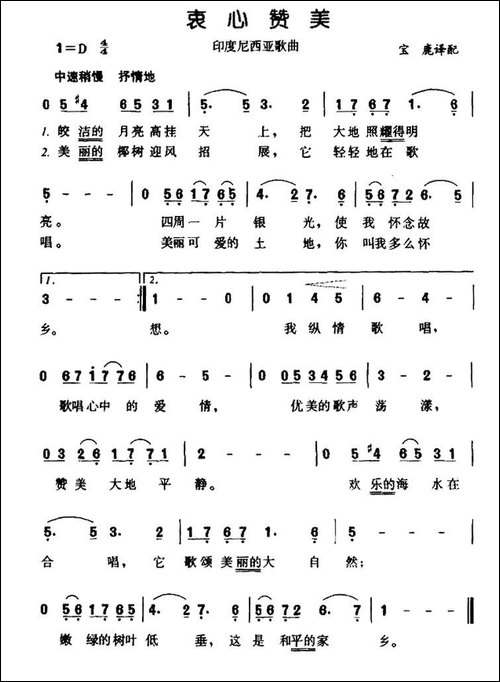 衷心赞美
1=D 4/4 印度尼西亚歌曲 宝 鹿译配
中速稍慢 抒情地
0 5 #4 6 5 3 1 | 5. 5 3. 2 | 1 7 6 7 1. 6 |
1. 皎 洁的 月亮高挂 天 上，把 大地照耀得明
2. 美 丽的 椰树迎风 招 展，它 轻轻地在歌
5 - - - | 0 5 6 1 7 6 5 | 4. 2 7. 6 | 5 6 7 2 6. 5 |
亮。 四周一片 银 光，使 我 怀念故
唱。 美丽可 爱的 土 地，你 叫我多么怀
1. 2.
3 - - - :| 1 - - 0 | 0 1 2 3 | 6 - 4 - |
乡。 想。 我 纵情 歌 唱，
0 6 7 1 7 7 6 | 6 - 5 - | 0 0 5 3 4 5 6 | 3 - 2 - |
歌唱心中 的 爱 情， 优美的歌声 荡 漾，
0 3 2 6 1 7 7 1 | 2 - - - | 0 5 #4 6 5 3 1 |
赞美 大地 平 静。 欢 乐的海 水在
5. 5 3. 2 | 1 7 6 7 1. 6 | 5 - - - |
合 唱，它 歌颂美丽的大 自然；
0 5 6 1 7 6 5 | 4. 2 7. 6 | 5 6 7 2 6. 5 | 1 - - 0 ‖
嫩 绿的树叶 低 垂，这 是 和平的家 乡。